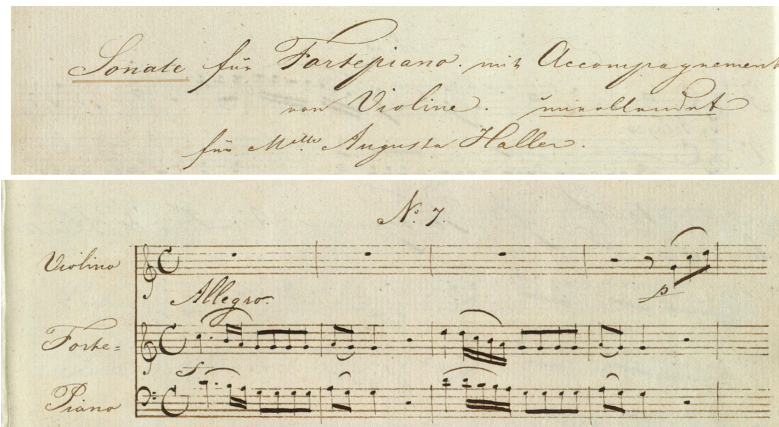 Sonate für Fortepiano. mit Accompagnement
von Violine. unvollendet
für Mlle Augusta Haller.
No. 7.
Violino
p
Allegro.
Forte=
f
Piano